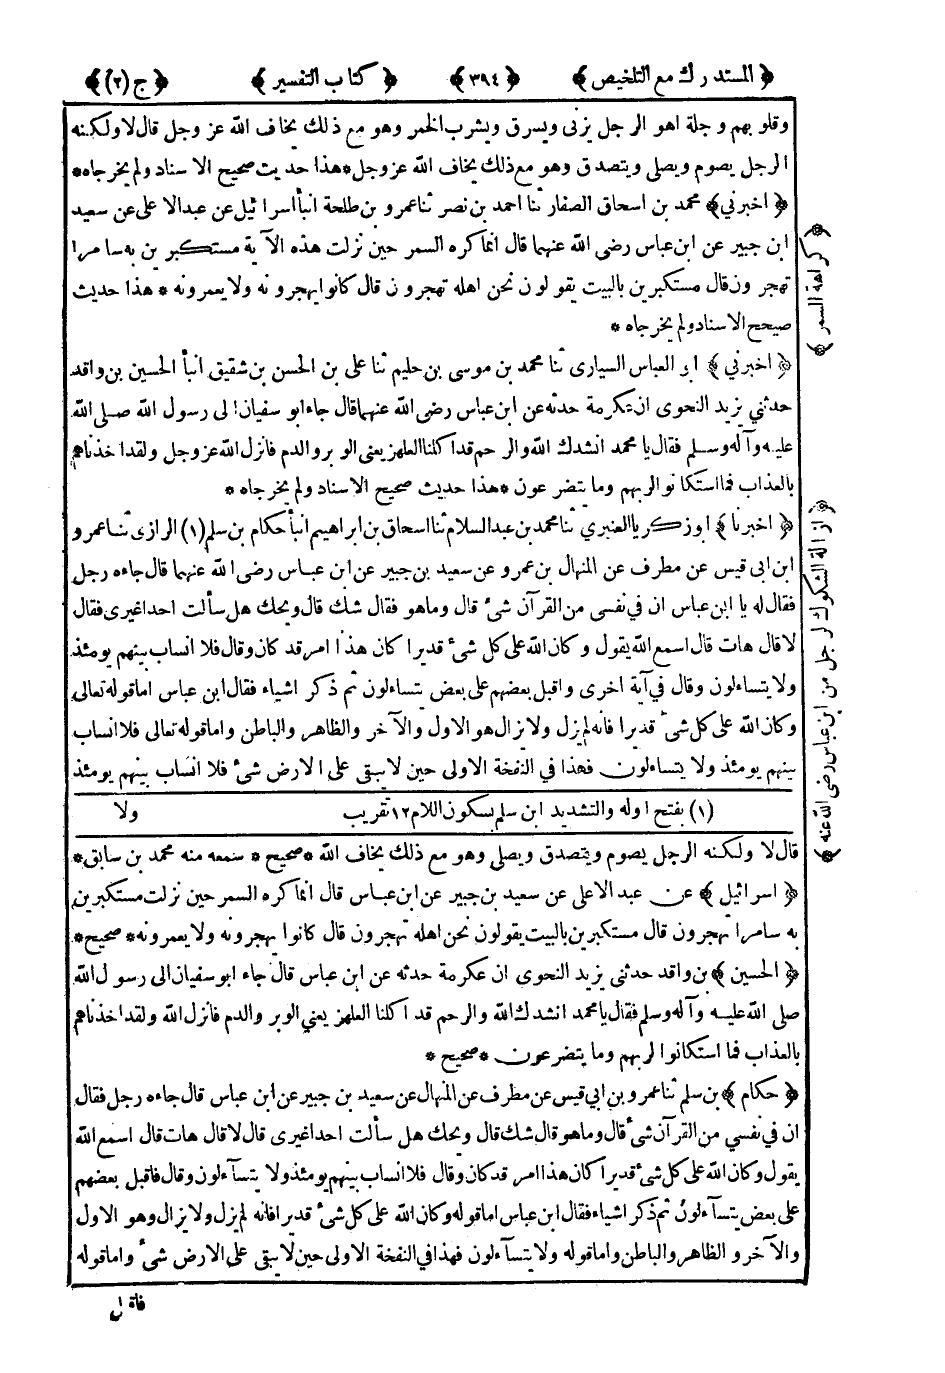 ﴿ المستدرك مع التلخيص ﴾ ﴿ ٣٩٤ ﴾ ﴿ كتاب التفسير ﴾ ﴿ ج (٢) ﴾
وقلوبهم وجلة اهو الرجل يزني ويسرق ويشرب الخمر وهو مع ذلك يخاف الله عز وجل قال لا ولكنه
الرجل يصوم ويصلي ويتصدق وهو مع ذلك يخاف الله عز وجل * هذا حديث صحيح الاسناد ولم يخرجاه *
﴿ اخبرني ﴾ محمد بن اسحاق الصفار ثنا احمد بن نصر ثنا عمرو بن طلحة انبأ اسرائيل عن عبد الاعلى عن سعيد
ابن جبير عن ابن عباس رضى الله عنهما قال انما كره السمر حين نزلت هذه الآية مستكبرين به سامرا
تهجرون قال مستكبرين بالبيت يقولون نحن اهله تهجرون قال كانوا يهجرونه ولا يعمرونه * هذا حديث
صحيح الاسناد ولم يخرجاه *
﴿ اخبرني ﴾ ابو العباس السيارى ثنا محمد بن موسى بن حليم ثنا على بن الحسن بن شقيق انبأ الحسين بن واقد
حدثني يزيد النحوى ان عكرمة حدثه عن ابن عباس رضى الله عنهما قال جاء ابو سفيان الى رسول الله صلى الله
عليه وآله وسلم فقال يا محمد انشدك الله والرحم قد اكلنا العلهز يعنى الوبر والدم فانزل الله عز وجل ولقد اخذناهم
بالعذاب فما استكانوا لربهم وما يتضرعون * هذا حديث صحيح الاسناد ولم يخرجاه *
﴿ اخبرنا ﴾ ابو زكريا العنبري ثنا محمد بن عبد السلام ثنا اسحاق بن ابراهيم انبأ حكام بن سلم (١) الرازى ثنا عمرو
ابن ابى قيس عن مطرف عن المنهال بن عمرو عن سعيد بن جبير عن ابن عباس رضى الله عنهما قال جاءه رجل
فقال له يا ابن عباس ان في نفسى من القرآن شئ قال وما هو فقال شك قال ويحك هل سألت احدا غيرى فقال
لا قال هات قال اسمع الله يقول وكان الله على كل شئ قديرا كان هذا امر قد كان وقال فلا انساب بينهم يومئذ
ولا يتساءلون وقال في آية اخرى واقبل بعضهم على بعض يتساءلون ثم ذكر اشياء فقال ابن عباس اما قوله تعالى
وكان الله على كل شئ قديرا فانه لم يزل ولا يزال هو الاول والآخر والظاهر والباطن واما قوله تعالى فلا انساب
بينهم يومئذ ولا يتساءلون فهذا في النفخة الاولى حين لا يبقى على الارض شئ فلا انساب بينهم يومئذ
(١) بفتح اوله والتشديد ابن سلم بسكون اللام ١٢ تقريب ولا
قال لا ولكنه الرجل يصوم ويتصدق ويصلى وهو مع ذلك يخاف الله * صحيح * سمعه منه محمد بن سابق *
﴿ اسرائيل ﴾ عن عبد الاعلى عن سعيد بن جبير عن ابن عباس قال انما كره السمر حين نزلت مستكبرين
به سامرا تهجرون قال مستكبرين بالبيت يقولون نحن اهله تهجرون قال كانوا يهجرونه ولا يعمرونه * صحيح *
﴿ الحسين ﴾ بن واقد حدثنى يزيد النحوى ان عكرمة حدثه عن ابن عباس قال جاء ابو سفيان الى رسول الله
صلى الله عليه وآله وسلم فقال يا محمد انشدك الله والرحم قد اكلنا العلهز يعني الوبر والدم فانزل الله ولقد اخذناهم
بالعذاب فما استكانوا لربهم وما يتضرعون * صحيح *
﴿ حكام ﴾ بن سلم ثنا عمرو بن ابي قيس عن مطرف عن المنهال عن سعيد بن جبير عن ابن عباس قال جاءه رجل فقال
ان في نفسي من القرآن شئ قال وما هو قال شك قال ويحك هل سألت احدا غيرى قال لا قال هات قال اسمع الله
يقول وكان الله على كل شئ قديرا كان هذا امر قد كان وقال فلا انساب بينهم يومئذ ولا يتسآءلون وقال فاقبل بعضهم
على بعض يتسآءلون ثم ذكر اشياء فقال ابن عباس اما قوله وكان الله على كل شئ قديرا فانه لم يزل ولا يزال وهو الاول
والآخر والظاهر والباطن واما قوله ولا يتسآءلون فهذا في النفخة الاولى حين لا يبقى على الارض شئ واما قوله
فاقبل
﴿ كراهة السمر ﴾
﴿ ازالة الشكوك لرجل من ابن عباس رضى الله عنه ﴾